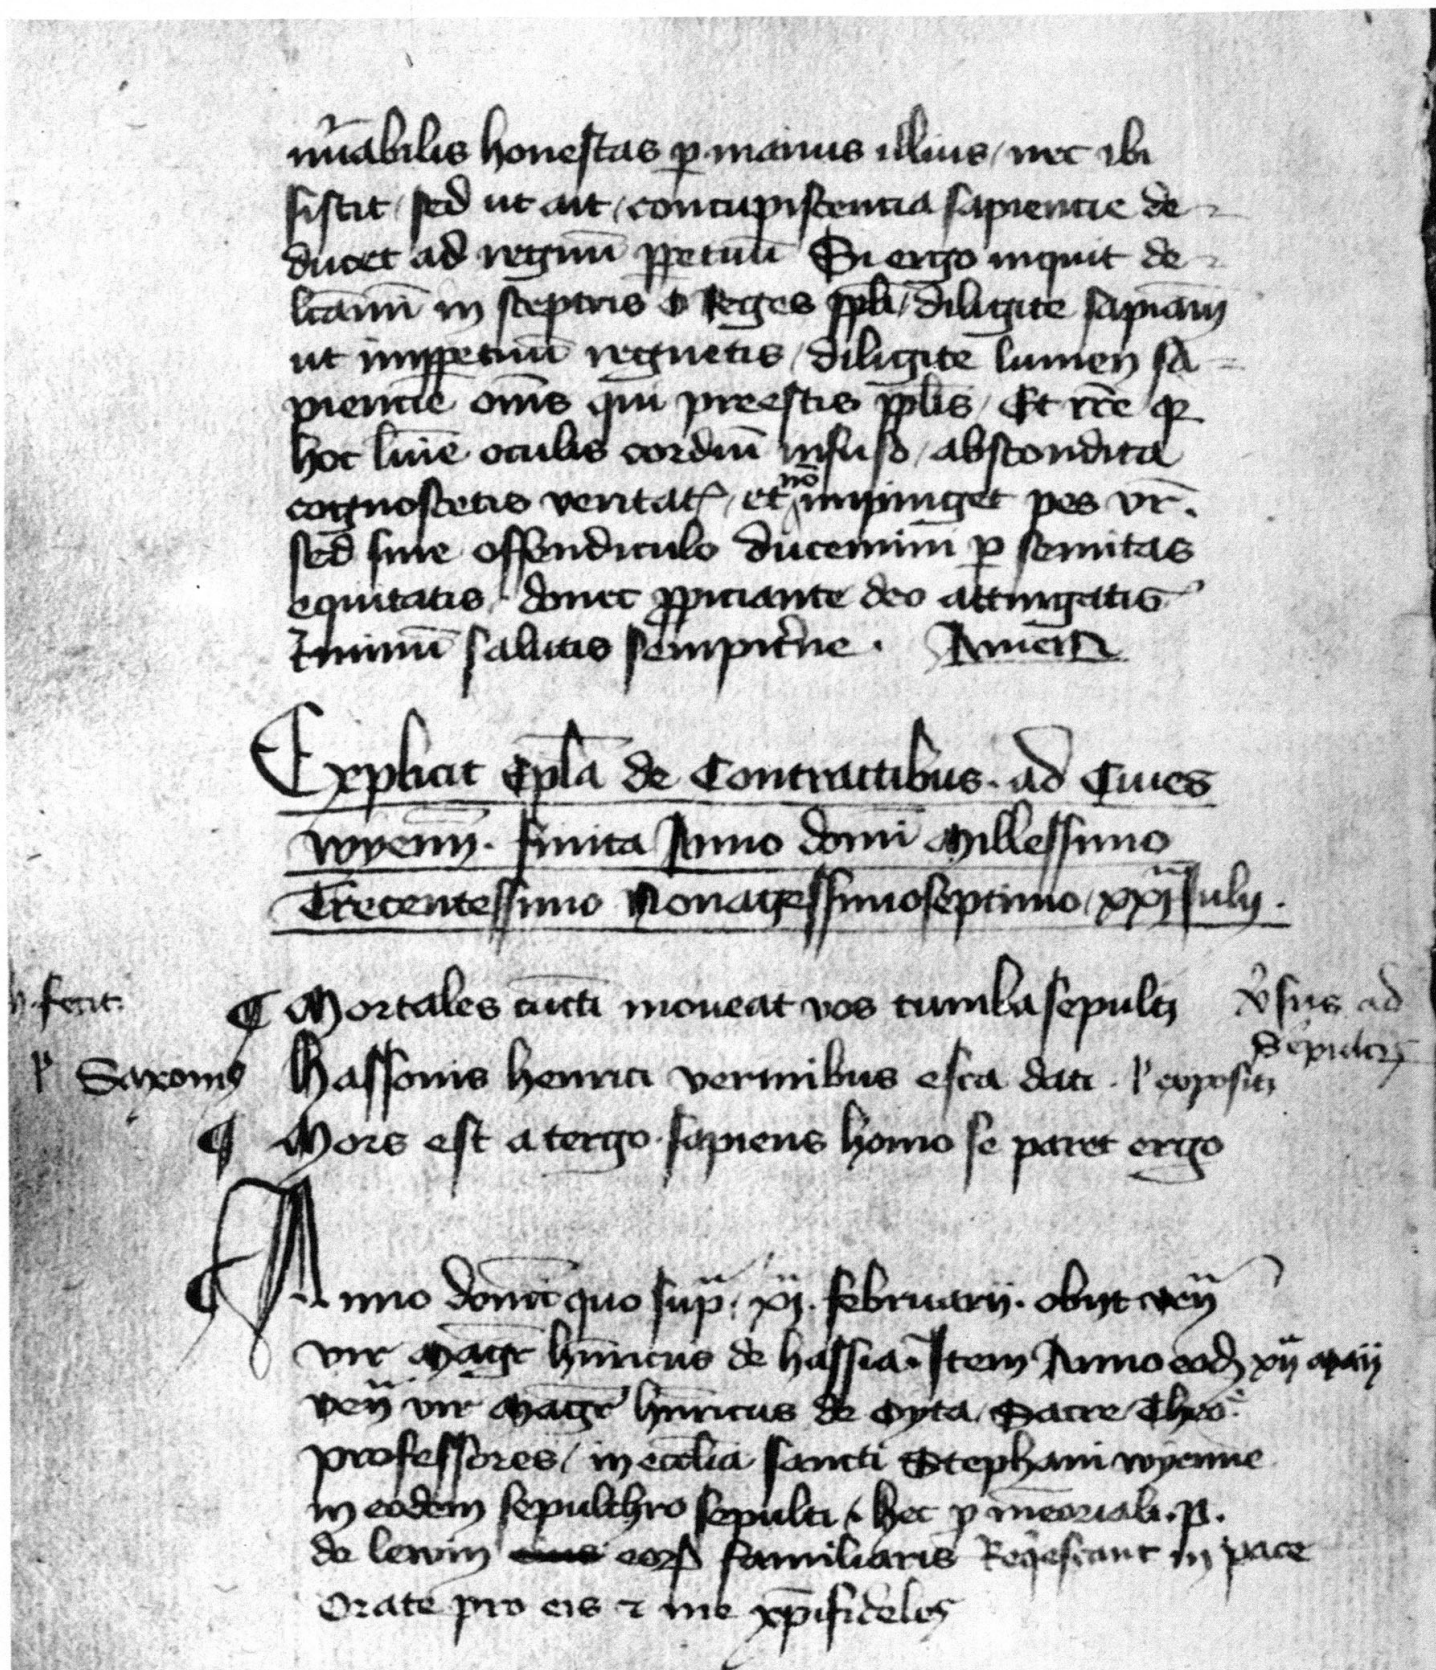 nu̅abilis honestas p manus illius / nec ibi
sistit / sed ut ait / concupiscencia sapiencie de-
ducet ad regnu̅ ppetuu̅ Si ergo inquit de-
lc̅amini in sceptris o Reges ppli / diligite sapiam̅
ut imppetuu̅ regnetis / diligite lumen sa=
piencie om̅s qui preestis pplis / Et rc̅e qr
hoc lumi̅e oculis cordiu̅ infuso / abscondita
cognoscetis veritat / et no̅ impinget pes vr̅.
sed sine offendiculo ducemini p semitas
equitatis / donec ppiciante deo attingatis
t'minu̅ salutis sempit'ne . Amen
Explicit Epl̅a de Contractibus . ad Ciues
wyenn̅ . finita Anno domi̅ Millessimo
Trecentessimo Nonagessimoseptimo / xxj Iulij .
fecit
¶ Mortales cuncti moueat vos tumba sepulti
v'sus ad
Sepulcr
Saxonis
Hassonis henrici vermibus esca dati . expositi
¶ Mors est a tergo . sapiens homo se paret ergo
¶ Anno domi̅ quo sup̅ . xj . februarij . obijt ven̅
vir Mag̅r hinricus de hassia . Item Anno eod xij Maij
ven̅ vir Mag̅r hinricus de Oyta / Sacre Theo
professores / in eccl̅ia sancti Stephani wyenne
in eodem sepulchro sepulti / hec p memoriali . p .
de lewin eor familiaris Reqescant in pace
Orate pro eis ⁊ me xp̅ifideles